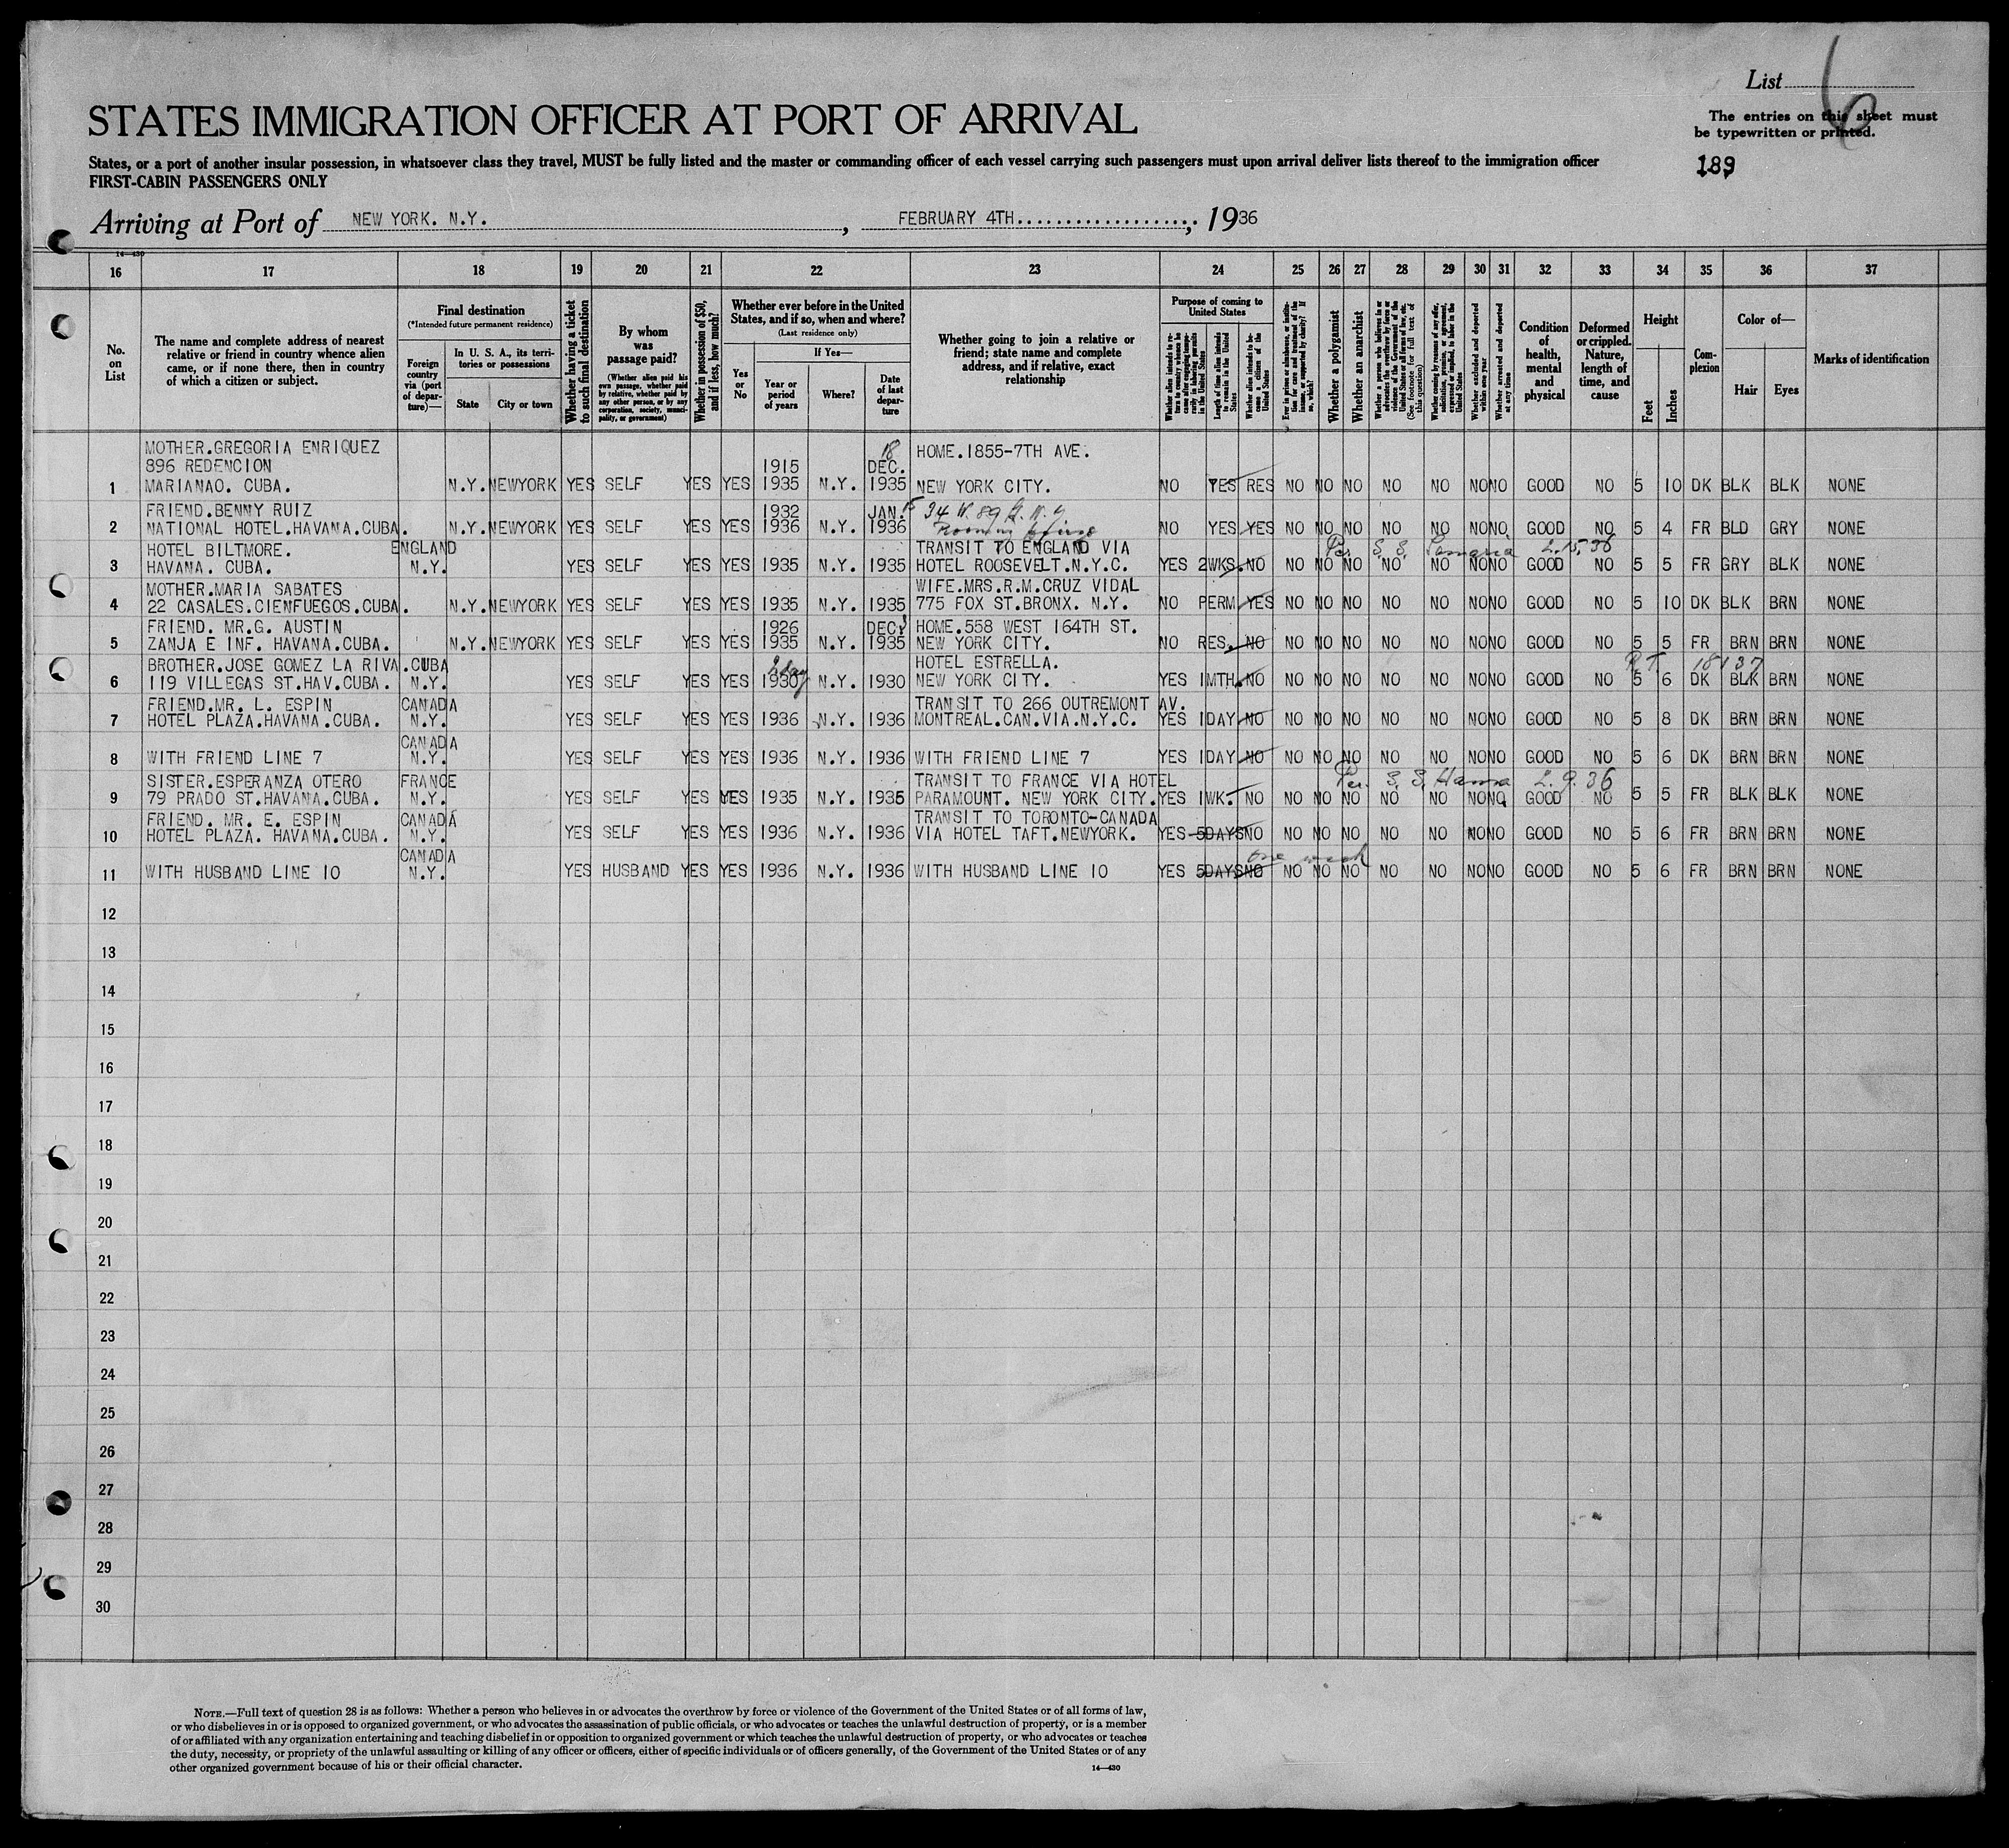 List 6
STATES IMMIGRATION OFFICER AT PORT OF ARRIVAL
The entries on this sheet must
be typewritten or printed.
States, or a port of another insular possession, in whatsoever class they travel, MUST be fully listed and the master or commanding officer of each vessel carrying such passengers must upon arrival deliver lists thereof to the immigration officer
FIRST-CABIN PASSENGERS ONLY
189
Arriving at Port of NEW YORK. N.Y. , FEBRUARY 4TH , 1936
14—430
16 17 18 19 20 21 22 23 24 25 26 27 28 29 30 31 32 33 34 35 36 37
No. on List
The name and complete address of nearest relative or friend in country whence alien came, or if none there, then in country of which a citizen or subject.
Final destination
(*Intended future permanent residence)
Foreign country via (port of departure)—
In U. S. A., its territories or possessions
State
City or town
Whether having a ticket to such final destination
By whom was passage paid?
(Whether alien paid his own passage, whether paid by relative, whether paid by any other person, or by any corporation, society, municipality, or government)
Whether in possession of $50, and if less, how much?
Whether ever before in the United States, and if so, when and where?
(Last residence only)
Yes or No
If Yes—
Year or period of years
Where?
Date of last departure
Whether going to join a relative or friend; state name and complete address, and if relative, exact relationship
Purpose of coming to United States
Length of time alien intends to remain in the United States
Whether alien intends to become a citizen of the United States
Whether a polygamist
Whether an anarchist
(See footnote for full text of this question)
Whether excluded and deported within one year
Whether arrested and deported at any time
Condition of health, mental and physical
Deformed or crippled. Nature, length of time, and cause
Height
Feet
Inches
Complexion
Color of—
Hair
Eyes
Marks of identification
MOTHER.GREGORIA ENRIQUEZ 18 HOME.1855-7TH AVE.
896 REDENCION 1915 DEC.
1 MARIANAO. CUBA. N.Y. NEWYORK YES SELF YES YES 1935 N.Y. 1935 NEW YORK CITY. NO YES RES NO NO NO NO NO NO NO GOOD NO 5 10 DK BLK BLK NONE
FRIEND.BENNY RUIZ 1932 JAN. 34 W. 89
2 NATIONAL HOTEL.HAVANA.CUBA. N.Y. NEWYORK YES SELF YES YES 1936 N.Y. 1936 NO YES YES NO NO NO NO NO NO NO GOOD NO 5 4 FR BLD GRY NONE
HOTEL BILTMORE. ENGLAND TRANSIT TO ENGLAND VIA Per S. S. 2.15.36
3 HAVANA. CUBA. N.Y. YES SELF YES YES 1935 N.Y. 1935 HOTEL ROOSEVELT.N.Y.C. YES 2WKS. NO NO NO NO NO NO NO NO GOOD NO 5 5 FR GRY BLK NONE
MOTHER.MARIA SABATES WIFE.MRS.R.M.CRUZ VIDAL
4 22 CASALES.CIENFUEGOS.CUBA. N.Y. NEWYORK YES SELF YES YES 1935 N.Y. 1935 775 FOX ST.BRONX. N.Y. NO PERM YES NO NO NO NO NO NO NO GOOD NO 5 10 DK BLK BRN NONE
FRIEND. MR.G. AUSTIN 1926 DEC. HOME.558 WEST 164TH ST.
5 ZANJA E INF. HAVANA.CUBA. N.Y. NEWYORK YES SELF YES YES 1935 N.Y. 1935 NEW YORK CITY. NO RES. NO NO NO NO NO NO NO NO GOOD NO 5 5 FR BRN BRN NONE
BROTHER.JOSE GOMEZ LA RIVA.CUBA HOTEL ESTRELLA. R.T.
6 119 VILLEGAS ST.HAV.CUBA. N.Y. YES SELF YES YES 1930 N.Y. 1930 NEW YORK CITY. YES 1MTH. NO NO NO NO NO NO NO NO GOOD NO 5 6 DK BLK BRN NONE
FRIEND.MR. L. ESPIN CANADA TRANSIT TO 266 OUTREMONT AV.
7 HOTEL PLAZA.HAVANA.CUBA. N.Y. YES SELF YES YES 1936 N.Y. 1936 MONTREAL.CAN.VIA.N.Y.C. YES 1DAY NO NO NO NO NO NO NO NO GOOD NO 5 8 DK BRN BRN NONE
CANADA
8 WITH FRIEND LINE 7 N.Y. YES SELF YES YES 1936 N.Y. 1936 WITH FRIEND LINE 7 YES 1DAY NO NO NO NO NO NO NO NO GOOD NO 5 6 DK BRN BRN NONE
SISTER.ESPERANZA OTERO FRANCE TRANSIT TO FRANCE VIA HOTEL Per. S. S. 2.9.36
9 79 PRADO ST.HAVANA.CUBA. N.Y. YES SELF YES YES 1935 N.Y. 1935 PARAMOUNT. NEW YORK CITY. YES 1WK. NO NO NO NO NO NO NO NO GOOD NO 5 5 FR BLK BLK NONE
FRIEND. MR. E. ESPIN CANADA TRANSIT TO TORONTO-CANADA
10 HOTEL PLAZA. HAVANA.CUBA. N.Y. YES SELF YES YES 1936 N.Y. 1936 VIA HOTEL TAFT.NEWYORK. YES 5DAYS NO NO NO NO NO NO NO NO GOOD NO 5 6 FR BRN BRN NONE
CANADA one week
11 WITH HUSBAND LINE 10 N.Y. YES HUSBAND YES YES 1936 N.Y. 1936 WITH HUSBAND LINE 10 YES 5DAYS NO NO NO NO NO NO NO NO GOOD NO 5 6 FR BRN BRN NONE
12
13
14
15
16
17
18
19
20
21
22
23
24
25
26
27
28
29
30
NOTE.—Full text of question 28 is as follows: Whether a person who believes in or advocates the overthrow by force or violence of the Government of the United States or of all forms of law,
or who disbelieves in or is opposed to organized government, or who advocates the assassination of public officials, or who advocates or teaches the unlawful destruction of property, or is a member
of or affiliated with any organization entertaining and teaching disbelief in or opposition to organized government or which teaches the unlawful destruction of property, or who advocates or teaches
the duty, necessity, or propriety of the unlawful assaulting or killing of any officer or officers, either of specific individuals or of officers generally, of the Government of the United States or of any
other organized government because of his or their official character.
14—430